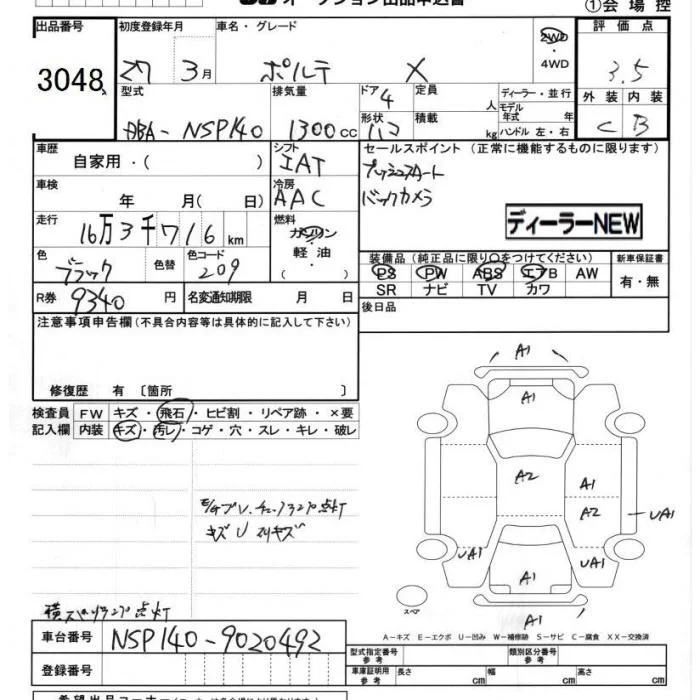 オークション出品申込書
①会場控
出品番号 初度登録年月 車名・グレード 評価点
3048 27 3月 ポルテ X 2WD ・4WD 3.5
型式 排気量 ドア 定員 ディーラー・並行 外装 内装
DBA-NSP140 1300cc 4 人 モデル年式 年式 C B
形状 積載 ハコ kg ハンドル 左・右
車歴 シフト セールスポイント (正常に機能するものに限ります)
自家用・( ) IAT プッシュスタート
車検 冷房 バックカメラ
年 月( 日) AAC
ディーラーNEW
走行 燃料
16万3千716km ガソリン・軽油・
色 色替 色コード 装備品 (純正品に限り○をつけてください) 新車保証書
ブラック 209 PS PW ABS エアB AW 有・無
SR ナビ TV カワ
R券 9340円 名変通知期限 月 日 後日品
注意事項申告欄(不具合内容等は具体的に記入して下さい)
修復歴 有 〔箇所 〕
検査員 FW キズ・飛石・ヒビ割・リペア跡・×要
記入欄 内装 キズ・汚レ・コゲ・穴・スレ・キレ・破レ
A1
A1
A2 A1
A2 UA1
UA1 UA1
A1
A1
スペア
キズU
横スベリランプ点灯
A-キズ E-エクボ U-凹み W-補修跡 S-サビ C-腐食 XX-交換済
車台番号 NSP140-9020492
型式指定番号 参考 類別区分番号 参考
登録番号 車庫証明用 参考 長さ cm 幅 cm 高さ cm
希望出品コーナー